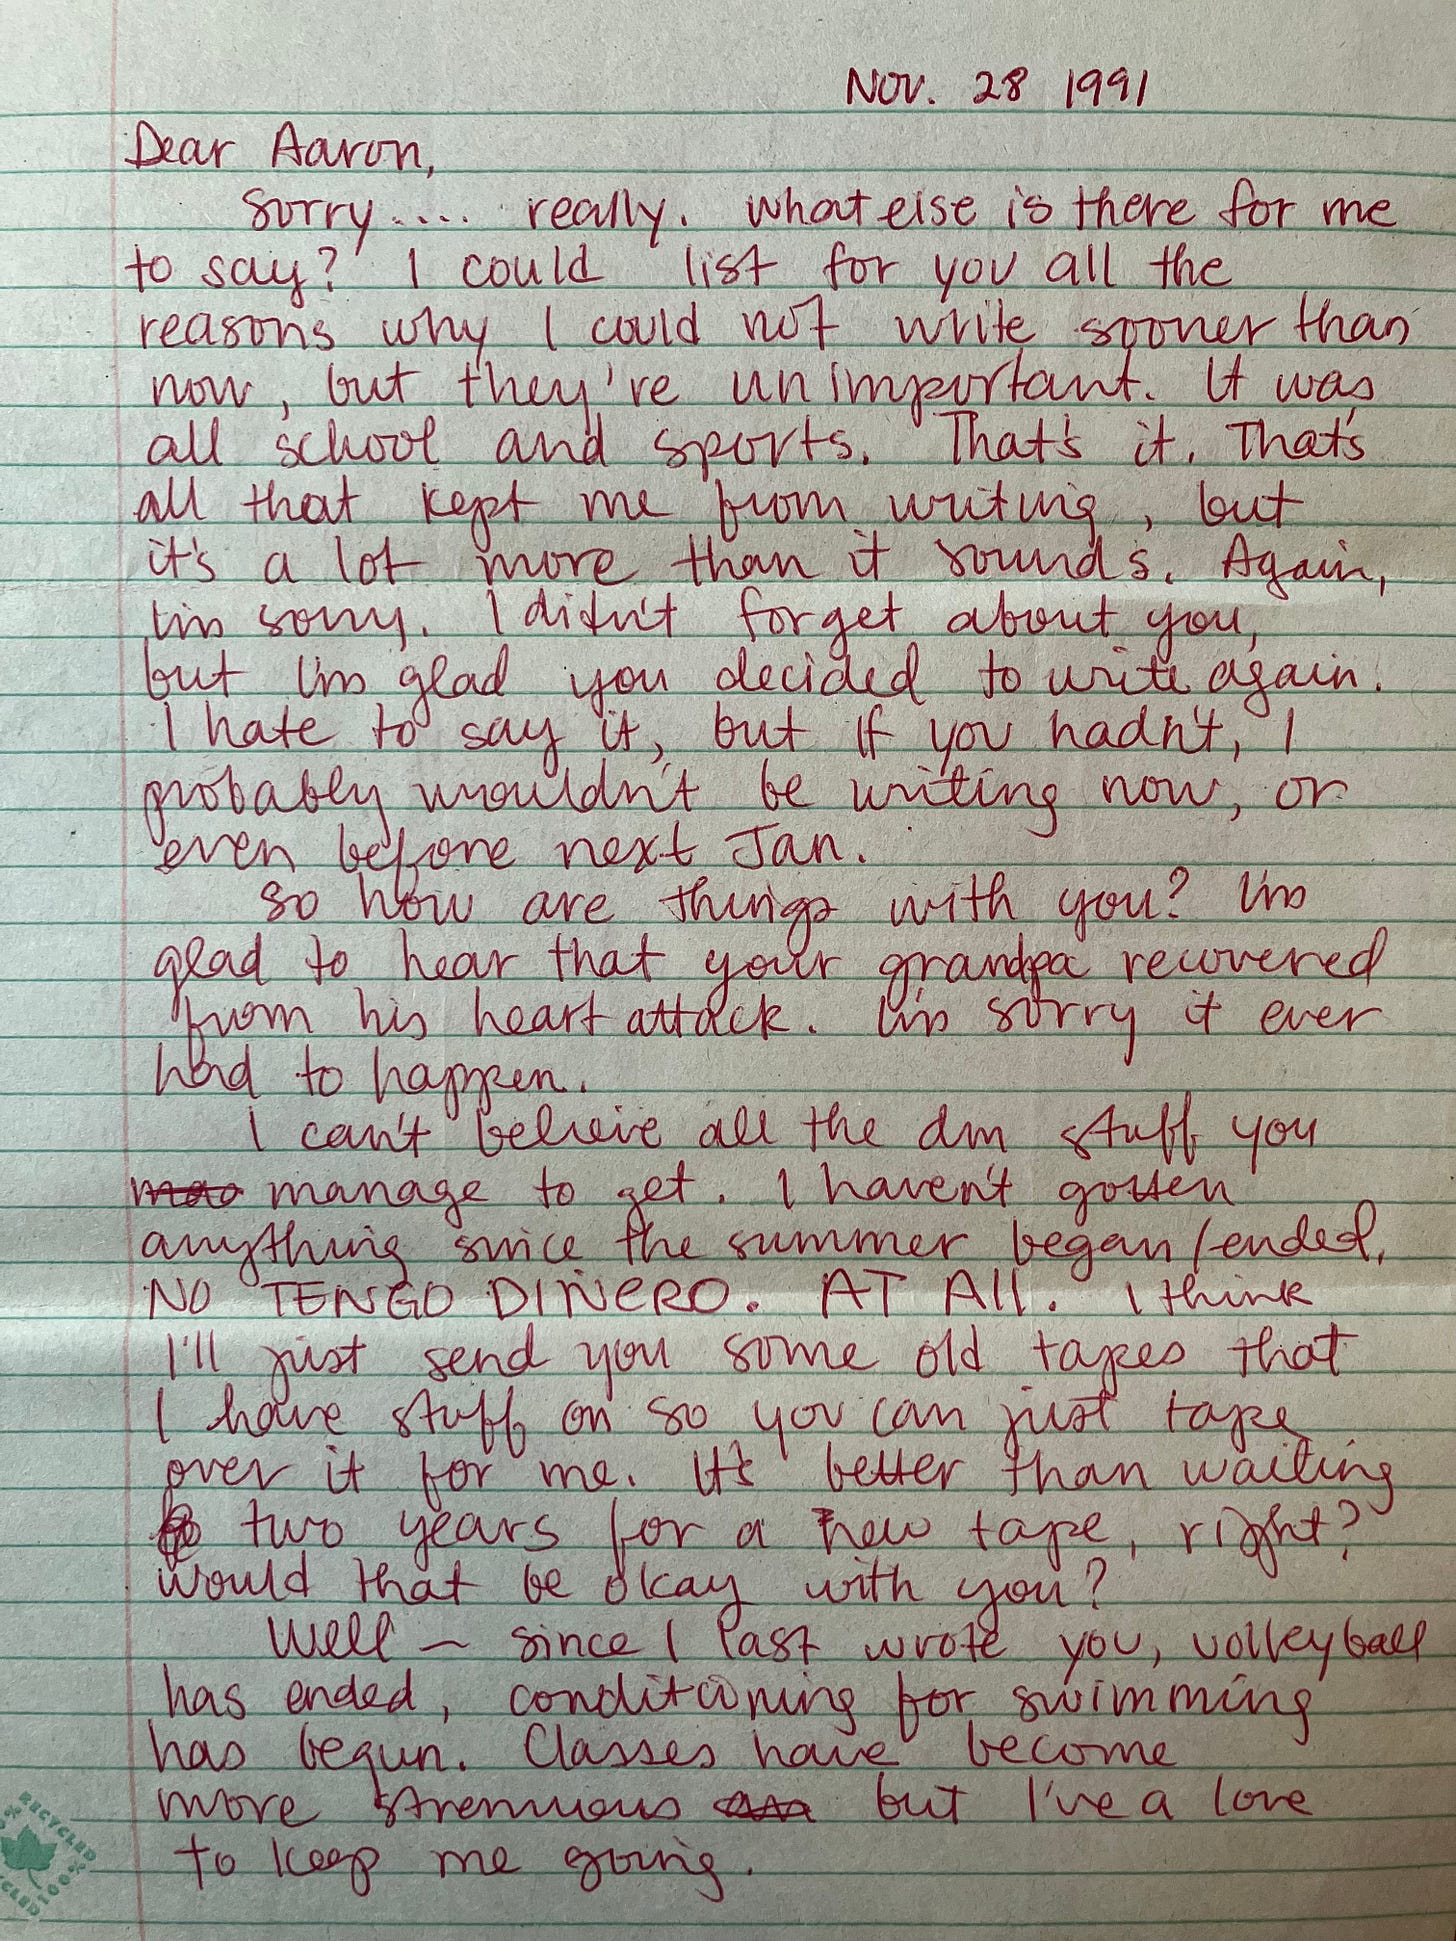 Nov. 28 1991
Dear Aaron,
Sorry.... really. What else is there for me
to say? I could list for you all the
reasons why I could not write sooner than
now, but they're unimportant. It was
all school and sports. That's it. That's
all that kept me from writing, but
it's a lot more than it sounds. Again,
I'm sorry. I didn't forget about you,
but I'm glad you decided to write again.
I hate to say it, but if you hadn't, I
probably wouldn't be writing now, or
even before next Jan.
So how are things with you? I'm
glad to hear that your grandpa recovered
from his heart attack. I'm sorry it ever
had to happen.
I can't believe all the dm stuff you
manage to get. I haven't gotten
anything since the summer began/ended.
NO TENGO DIÑERO. AT All. I think
I'll just send you some old tapes that
I have stuff on so you can just tape
over it for me. It's better than waiting
two years for a new tape, right?
Would that be okay with you?
Well – since I last wrote you, volleyball
has ended, conditioning for swimming
has begun. Classes have become
more strenuous but I've a love
to keep me going.
RECYCLED
100%